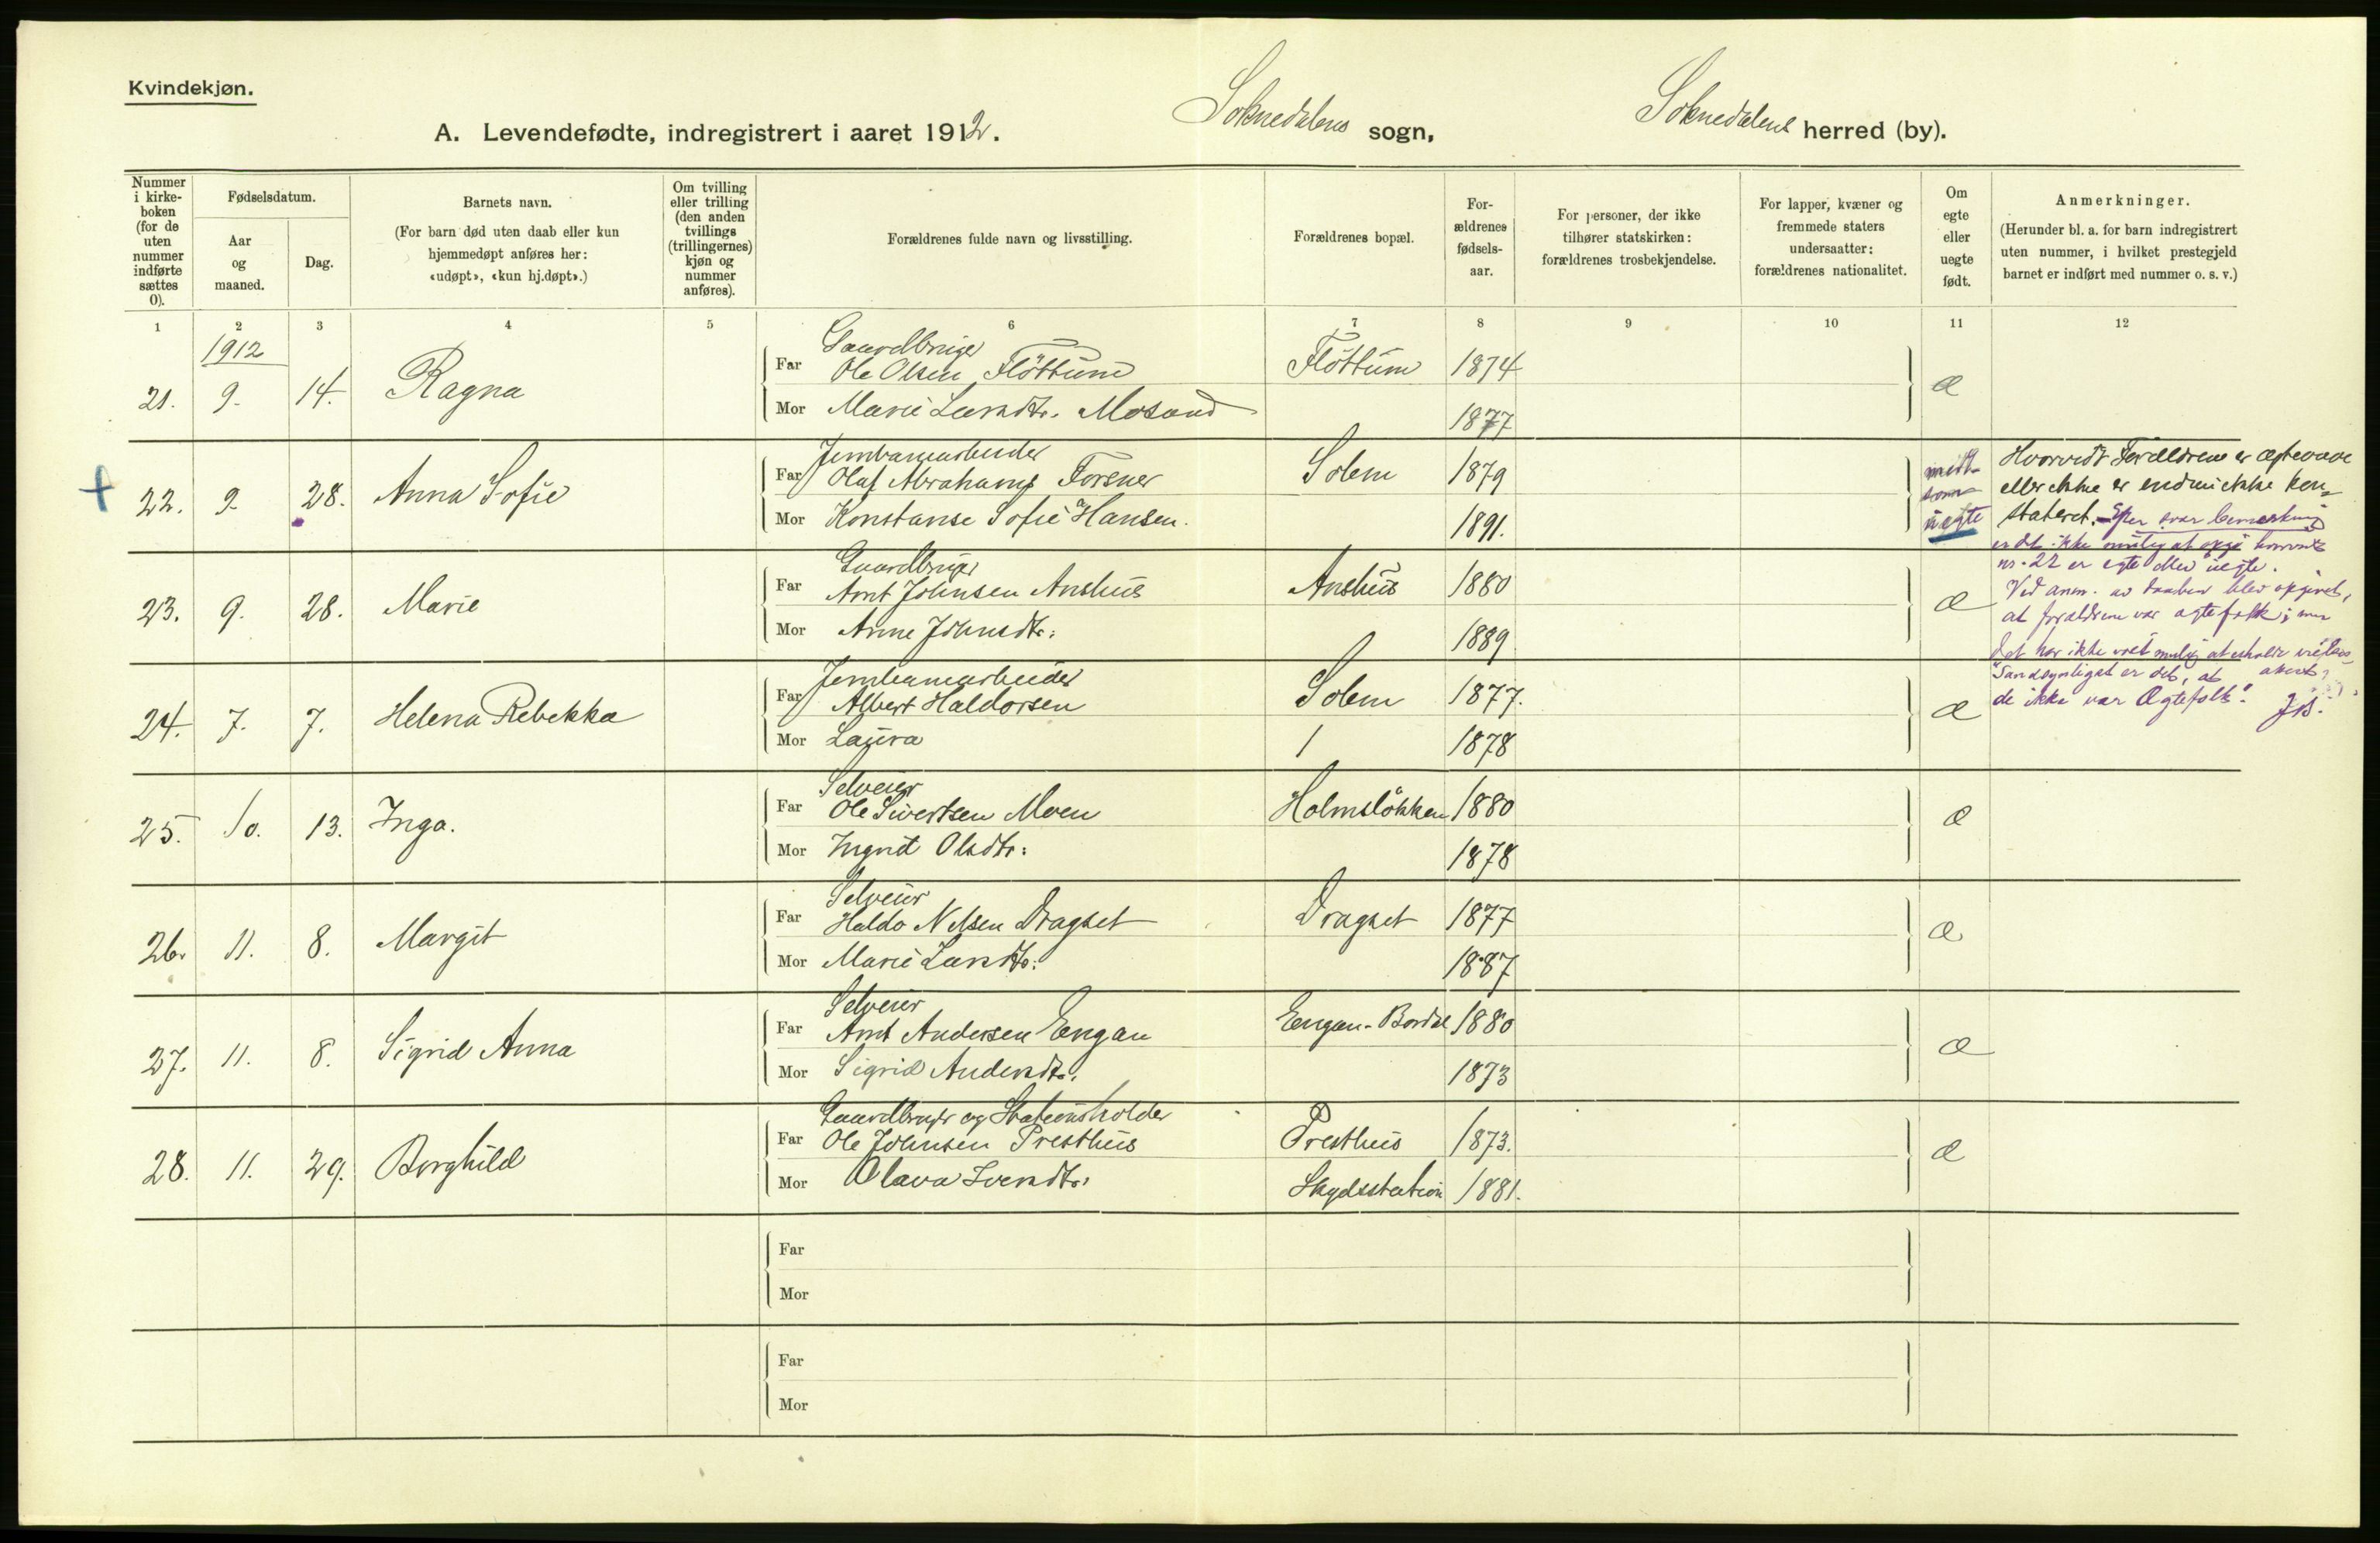 Kvindekjøn.
A. Levendefødte, indregistrert i aaret 1912. Soknedalens sogn, Soknedalens herred (by).
Nummer i kirkeboken (for de uten nummer indførte sættes 0).
Fødselsdatum.
Aar og maaned.
Dag.
Barnets navn.
(For barn død uten daab eller kun hjemmedøpt anføres her: «udøpt», «kun hj.døpt».)
Om tvilling eller trilling (den anden tvillings (trillingernes) kjøn og nummer anføres).
Forældrenes fulde navn og livsstilling.
Forældrenes bopæl.
Forældrenes fødselsaar.
For personer, der ikke tilhører statskirken: forældrenes trosbekjendelse.
For lapper, kvæner og fremmede staters undersaatter: forældrenes nationalitet.
Om egte eller uegte født.
Anmerkninger.
(Herunder bl. a. for barn indregistrert uten nummer, i hvilket prestegjeld barnet er indført med nummer o. s. v.)
1 2 3 4 5 6 7 8 9 10 11 12
1912
Gaardbruger
21. 9. 14. Ragna Far Ole Olsen Flöttum Flöttum 1874 Æ
Mor Marie Larsdtr. Mosand 1877
Jernbanearbeider
22. 9. 28. Anna Sofie Far Olaf Abrahams Forsner Solem 1879
Mor Konstanse Sofie Hansen. 1891. uegte
Hvorvidt Forældrene er ægteviede
eller ikke er endnu ikke kon-
stateret. Efter svar bemerkning
er det ikke mulig at opgi hvorvidt
nr. 22 er egte eller uegte.
Ved anm. av daaben blev opgivet,
at forældrene var egtefolk; men
det har ikke vært mulig at erholde
"Sandsynligst er det, at
de ikke var Ægtefolk". JB.
Gaardbruger
23. 9. 28. Marie Far Arnt Johnsen Anshus Anshus 1880 Æ
Mor Anne Johnsdtr: 1889
Jernbanearbeider
24. 7. 7. Helena Rebekka Far Albert Haldorsen Solem 1877. Æ
Mor Laura 1878
Selveier
25. 10. 13. Inga. Far Ole Sivertsen Moen Holmslökken 1880 Æ
Mor Ingrid Olsdtr: 1878
Selveier
26. 11. 8. Margit Far Haldo Nilsen Dragset Dragset 1877 Æ
Mor Marie Larsdtr: 1887
Selveier
27. 11. 8. Sigrid Anna Far Arnt Andersen Engan Engan-Bordal 1880 Æ
Mor Sigrid Andersdtr. 1873
Gaardbruger og Stationsholder
28. 11. 29. Borghild Far Ole Johnsen Presthus Presthus 1873. Æ
Mor Olava Iversdtr. Skydsstation 1881.
Far
Mor
Far
Mor